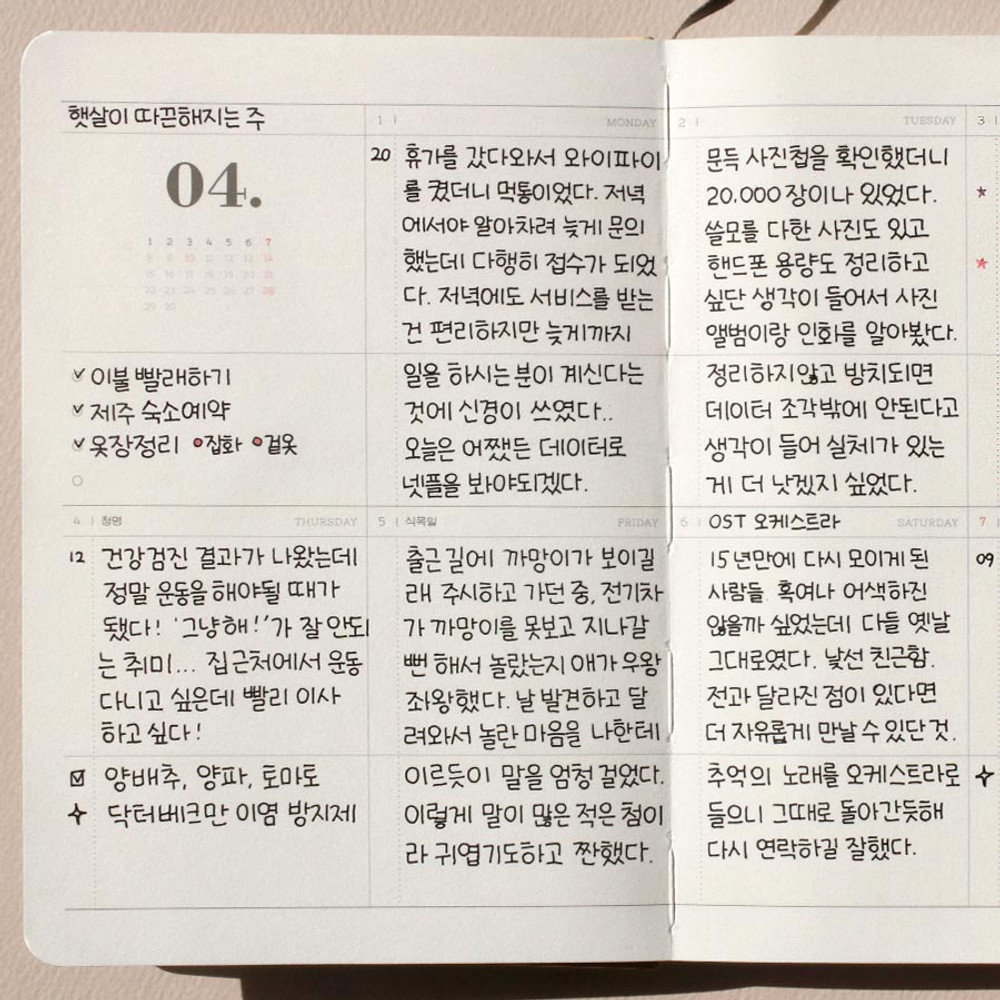 햇살이 따끈해지는 주
04.
1 2 3 4 5 6 7
8 9 10 11 12 13 14
15 16 17 18 19 20 21
22 23 24 25 26 27 28
29 30
이불 빨래하기
제주 숙소예약
옷장정리 •잡화 •겉옷
1 MONDAY
20 휴가를 갔다와서 와이파이
를 켰더니 먹통이었다. 저녁
에서야 알아차려 늦게 문의
했는데 다행히 접수가 되었
다. 저녁에도 서비스를 받는
건 편리하지만 늦게까지
일을 하시는 분이 계신다는
것에 신경이 쓰였다..
오늘은 어쨌든 데이터로
넷플을 보아야되겠다.
2 TUESDAY
문득 사진첩을 확인했더니
20.000장이나 있었다.
쓸모를 다한 사진도 있고
핸드폰 용량도 정리하고
싶단 생각이 들어서 사진
앨범이랑 인화를 알아봤다.
정리하지않고 방치되면
데이터 조각밖에 안된다고
생각이 들어 실체가 있는
게 더 낫겠지 싶었다.
3
4 청명 THURSDAY
12 건강검진 결과가 나왔는데
정말 운동을 해야될 때가
됐다! '그냥 해!'가 잘 안되
는 취미... 집근처에서 운동
다니고 싶은데 빨리 이사
하고 싶다!
양배추, 양파, 토마토
닥터베크만 이염 방지제
5 식목일 FRIDAY
출근길에 까망이가 보이길
래 주시하고 가던 중, 전기차
가 까망이를 못보고 지나갈
뻔 해서 놀랐는지 얘가 우왕
좌왕했다. 날 발견하고 달
려와서 놀란 마음을 나한테
이르듯이 말을 엄청 걸었다.
이렇게 말이 많은 적은 첨이
라 귀엽기도하고 짠했다.
6 OST 오케스트라 SATURDAY
15년만에 다시 모이게 된
사람들 혹여나 어색하진
않을까 싶었는데 다들 옛날
그대로였다. 낯선 친근함.
전과 달라진 점이 있다면
더 자유롭게 만날 수 있단 것.
추억의 노래를 오케스트라로
들으니 그때로 돌아간듯해
다시 연락하길 잘했다.
7
09